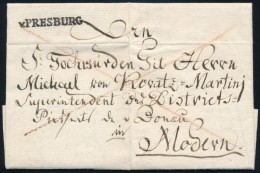 v. PRESBURG
Sr Hochwürden Titl Herrn
Michael von Kovatz-Martinj
Superintendent des Districts
dis der Donau
in
Modern.